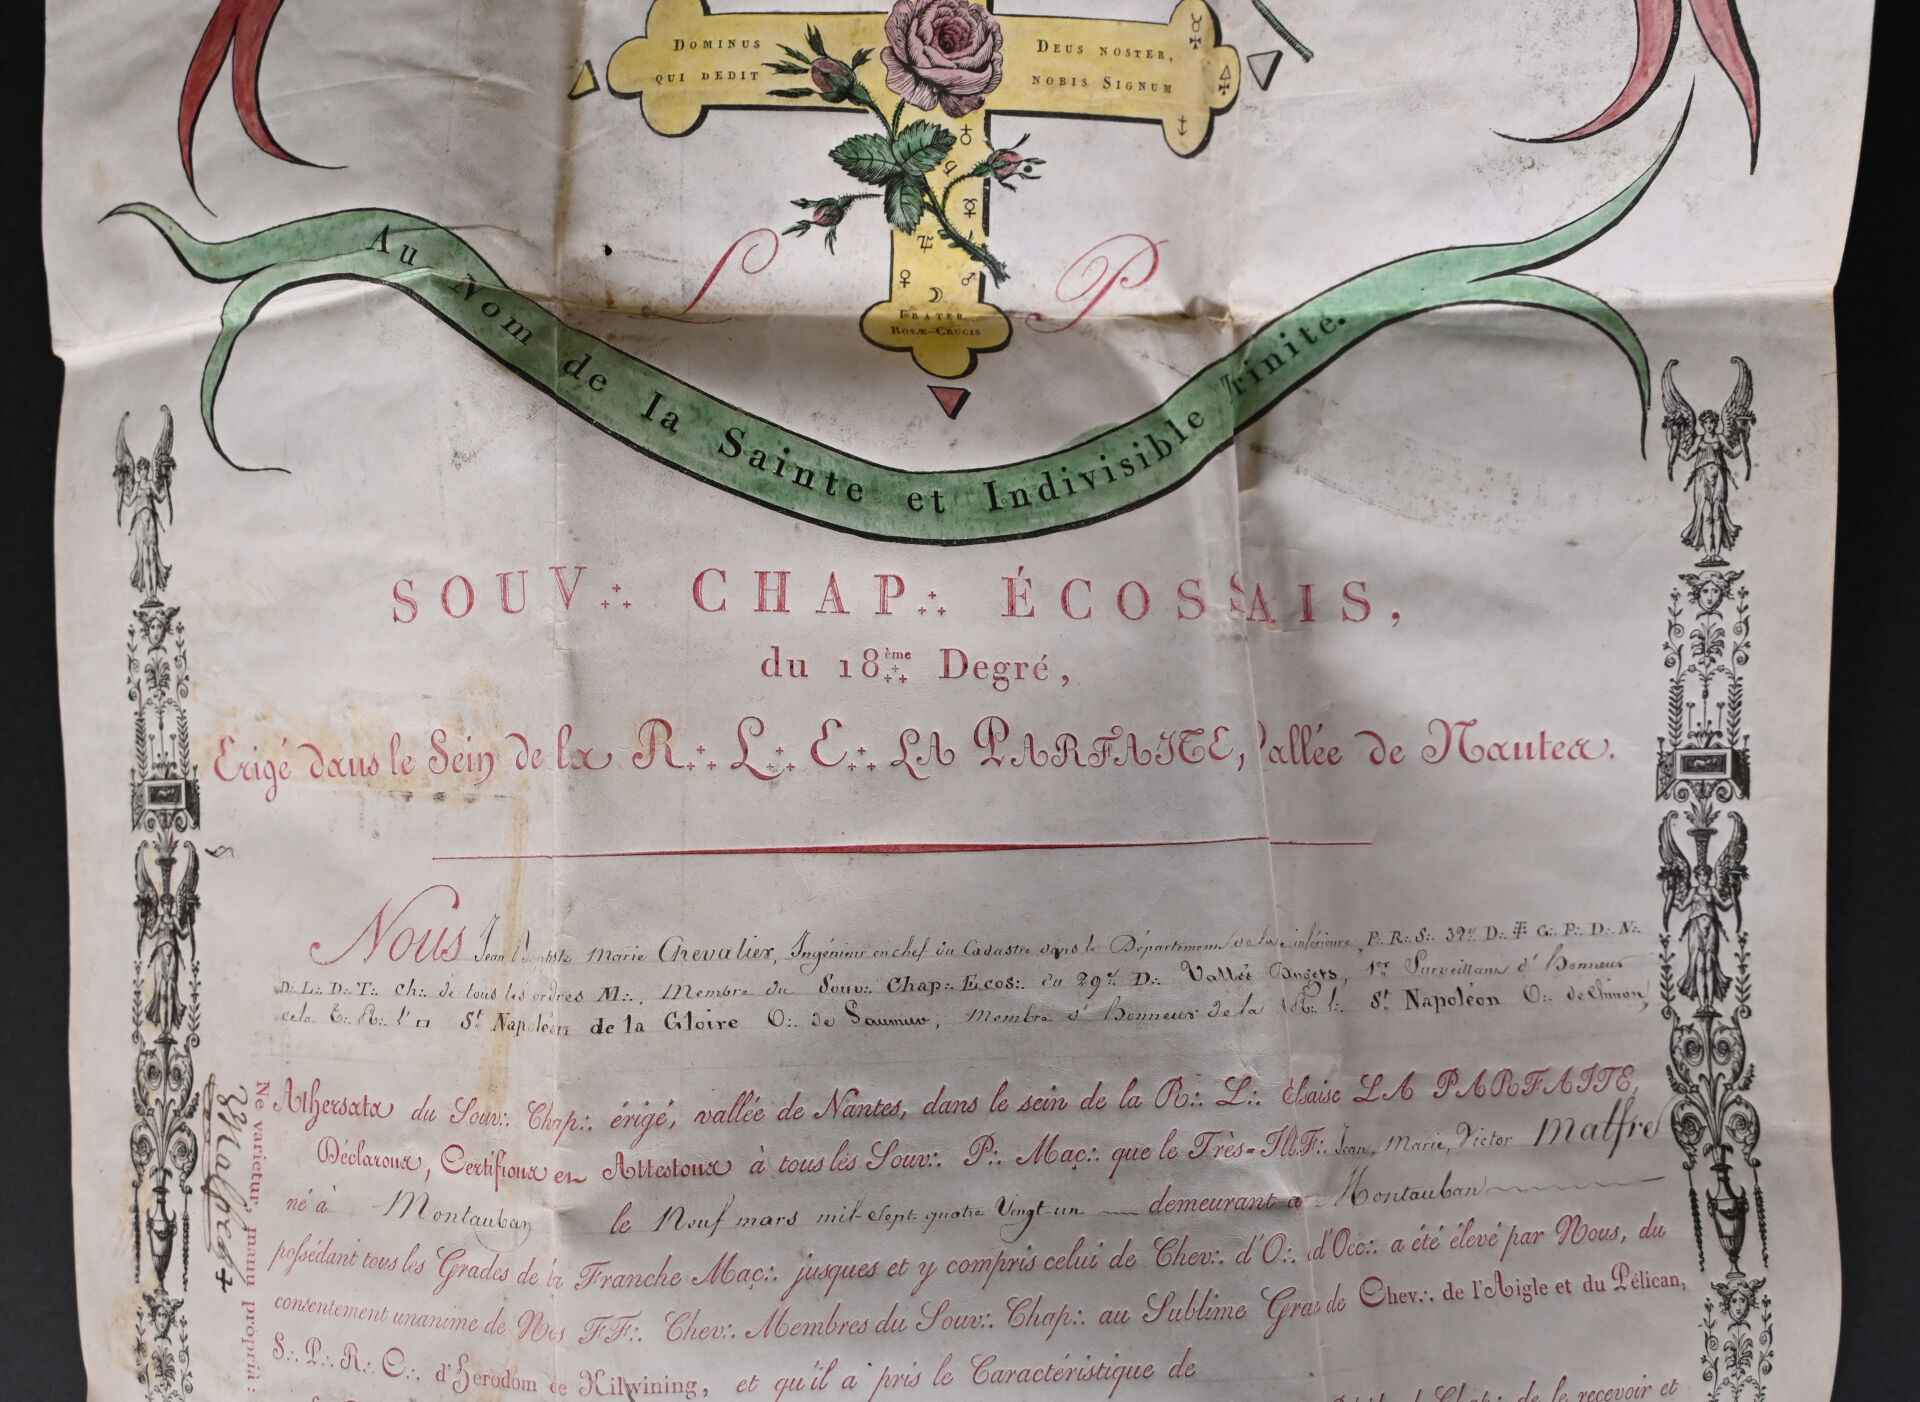 DOMINUS DEUS NOSTER,
QUI DEDIT NOBIS SIGNUM
S P
FRATER
ROSÆ-CRUCIS
Au Nom de la Sainte et Indivisible Trinité.
SOUV∴ CHAP∴ ÉCOSSAIS,
du 18ème∴ Degré,
Erigé dans le Sein de la R∴ L∴ E∴ LA PARFAITE, Vallée de Nantes.
Nous Jean Baptiste Marie Chevalier, Ingénieur en chef du Cadastre dans le Département de la inférieure, P∴ R∴ S∴ D∴ G∴ P∴ D∴ N∴
D∴ L∴ D∴ T∴ Ch∴ de tous les ordres M∴, Membre du Souv∴ Chap∴ Ecos∴ du 29e D∴ Vallée d'Angers, 1er Surveillant d'honneur
de la T∴ R∴ l∴ □ St Napoléon de la Gloire O∴ de Saumur, Membre d'honneur de la R∴ l∴ St Napoléon O∴ de Chinon,
Athersata du Souv∴ Chap∴ érigé, vallée de Nantes, dans le sein de la R∴ L∴ Elsaise LA PARFAITE,
Déclarons, Certifions et Attestons à tous les Souv∴ P∴ Maç∴ que le Très-Ill F∴ Jean, Marie, Victor Malfre
né à Montauban le Neuf mars mil-sept-quatre Vingt-un demeurant à Montauban
possédant tous les Grades de la Franche Maç∴ jusques et y compris celui de Chev∴ d'O∴ d'Occ∴ a été élevé par Nous, du
consentement unanime de Nos FF∴ Chev∴ Membres du Souv∴ Chap∴ au Sublime Grade de Chev∴ de l'Aigle et du Pélican,
S∴ P∴ R∴ C∴ d'Herodom de Kilwining, et qu'il a pris le Caractéristique de
Chap∴ de le recevoir et
Ne varietur, manu propria: